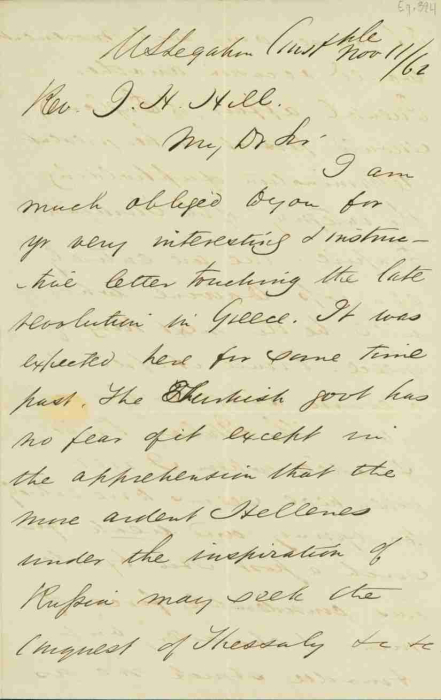 Eg. 394
US Legation Constple
Nov 11/62
Rev. J. H. Hill.
My Dr Sir
I am
much obliged to you for
yr very interesting & instruc-
-tive letter touching the late
revolution in Greece. It was
expected here for some time
past. The Turkish govt has
no fear of it except in
the apprehension that the
more ardent Hellenes
under the inspiration of
Russia may seek the
conquest of Thessaly &c &c